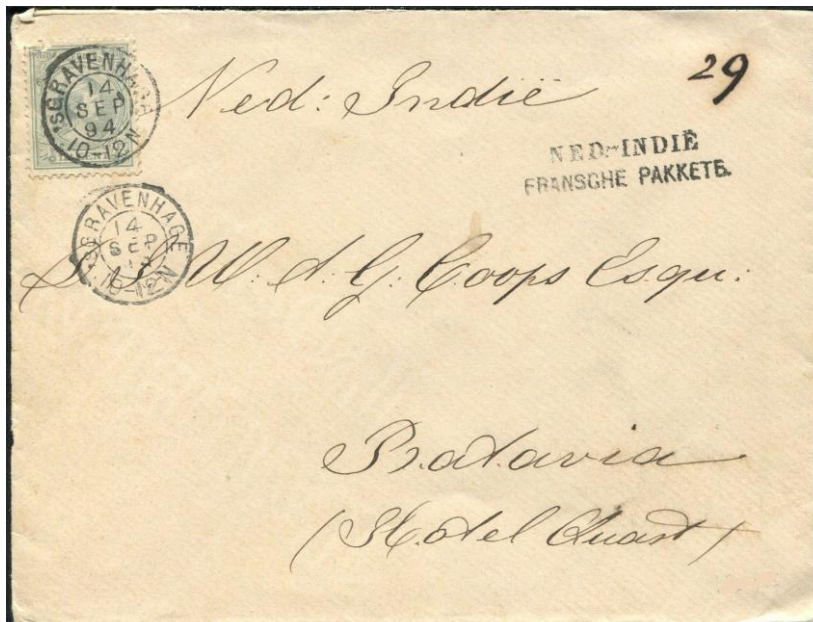 'SGRAVENHAGE
14
SEP
94
10-12N
Ned: Indië
29
NED-INDIË
FRANSCHE PAKKETB.
'SGRAVENHAGE
14
SEP
10-12N
W: A: G: Coops Esqu:
Batavia
(Hotel Quast)